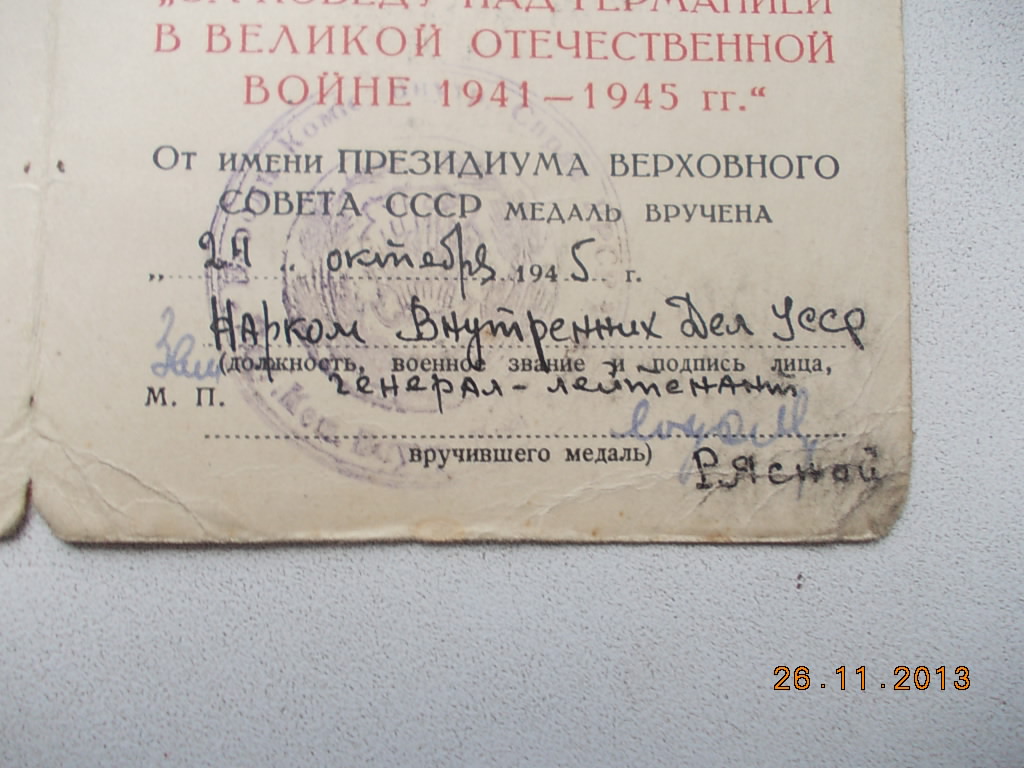 „ЗА ПОБЕДУ НАД ГЕРМАНИЕЙ
В ВЕЛИКОЙ ОТЕЧЕСТВЕННОЙ
ВОЙНЕ 1941—1945 гг.“
От имени ПРЕЗИДИУМА ВЕРХОВНОГО
СОВЕТА СССР МЕДАЛЬ ВРУЧЕНА
„ 24 „ октября 1945 г.
Зам Нарком Внутренних Дел УССР
(должность, военное звание и подпись лица,
генерал-лейтенант
М. П.
вручившего медаль)
Рясной
26.11.2013